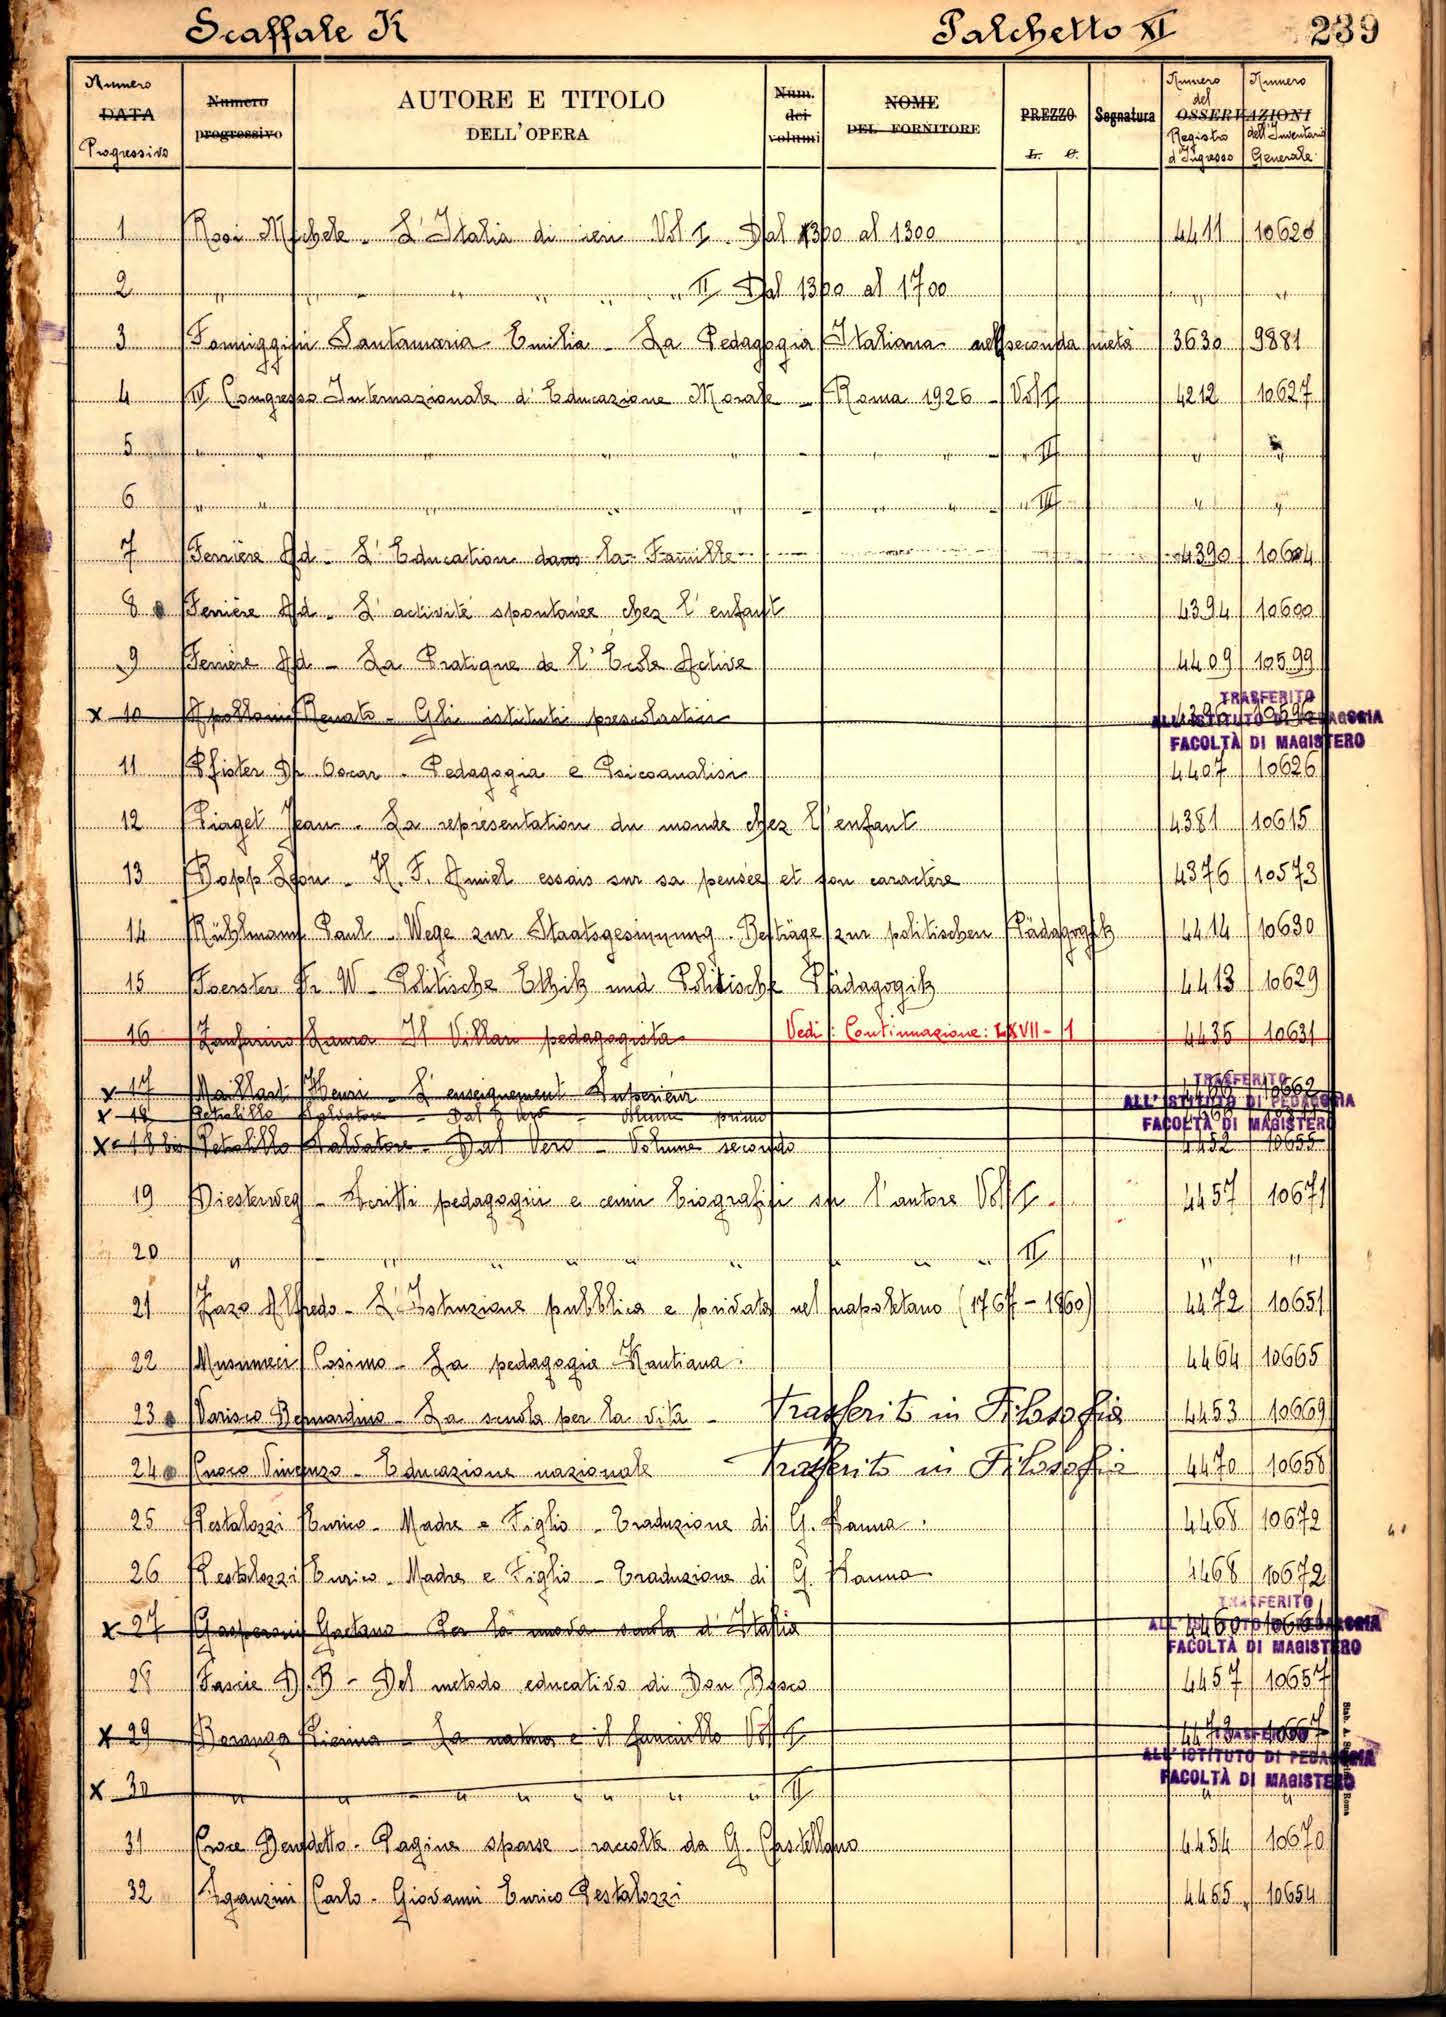 Scaffale K Palchetto XI 239
Numero DATA Progressivo Numero progressivo AUTORE E TITOLO DELL'OPERA Num. dei volumi NOME DEL FORNITORE PREZZO L. C. Segnatura OSSERVAZIONI Numero del Registro d'Ingresso Numero dell'Inventario Generale
1 Rosi Michele - L'Italia di ieri Vol I - Dal 1300 al 1300 4411 10628
2 " " - " " " " II Dal 1300 al 1700 " "
3 Formiggini Santamaria Emilia - La Pedagogia Italiana nell seconda metà 3630 9881
4 IV Congresso Internazionale d'Educazione Morale - Roma 1926 - Vol I 4212 10627
5 " " " " " - " " - " II " "
6 " " " " " - " " - " III " "
7 Ferrière Ad - L'Education dans la Famille 4390 10604
8 Ferrière Ad - L'activité spontanée chez l'enfant 4394 10600
9 Ferrière Ad - La Pratique de l'École Active 4409 10599
x 10 Renato - Gli istituti prescolastici
TRASFERITO
ALL'ISTITUTO DI PEDAGOGIA
FACOLTÀ DI MAGISTERO
11 Pfister Dr Oscar - Pedagogia e Psicoanalisi 4407 10626
12 Piaget Jean - La représentation du monde chez l'enfant 4381 10615
13 Bopp Léon - H. F. Amiel essais sur sa pensée et son caractère 4376 10573
14 Rühlmann Paul - Wege zur Staatsgesinnung. Beiträge zur politischen Pädagogik 4414 10630
15 Foerster Fr. W - Politische Ethik und Politische Pädagogik 4413 10629
16 Zanfarino Laura Il Villari pedagogista Vedi: Continuazione: LXVII - 1 4435 10631
x 17 Maillart Henri - L'enseignement Supérieur 10662
TRASFERITO
ALL'ISTITUTO DI PEDAGOGIA
x 18 Petralillo Salvatore - Dal Vero - Volume primo
FACOLTÀ DI MAGISTERO
x 18 bis Petralillo Salvatore - Dal Vero - Volume secondo 4452 10655
19 Diesterweg - Scritti pedagogici e cenni biografici su l'autore Vol I 4457 10671
20 " - " " " " " " " II " "
21 Zazo Alfredo - L'Istruzione pubblica e privata nel napoletano (1767 - 1860) 4472 10651
22 Musumeci Cosimo - La pedagogia Kantiana 4464 10665
23 Varisco Bernardino - La scuola per la vita - Trasferito in Filosofia 4453 10669
24 Cuoco Vincenzo - Educazione nazionale Trasferito in Filosofia 4470 10658
25 Pestalozzi Enrico - Madre e Figlio - Traduzione di G. Sanna 4468 10672
26 Pestalozzi Enrico - Madre e Figlio - Traduzione di G. Sanna 4468 10672
x 27 Gasperoni Gaetano - Per la nuova scuola d'Italia 4460
TRASFERITO
ALL'ISTITUTO DI PEDAGOGIA
FACOLTÀ DI MAGISTERO
28 Fascie D. B - Del metodo educativo di Don Bosco 4457 10657
x 29 Boranga Pierina - La natura e il fanciullo Vol I 4473 10667
TRASFERITO
ALL'ISTITUTO DI PEDAGOGIA
FACOLTÀ DI MAGISTERO
x 30 " " - " " " " " II " "
31 Croce Benedetto - Pagine sparse - raccolte da G. Castellano 4454 10670
32 Sganzini Carlo - Giovanni Enrico Pestalozzi 4465 10654